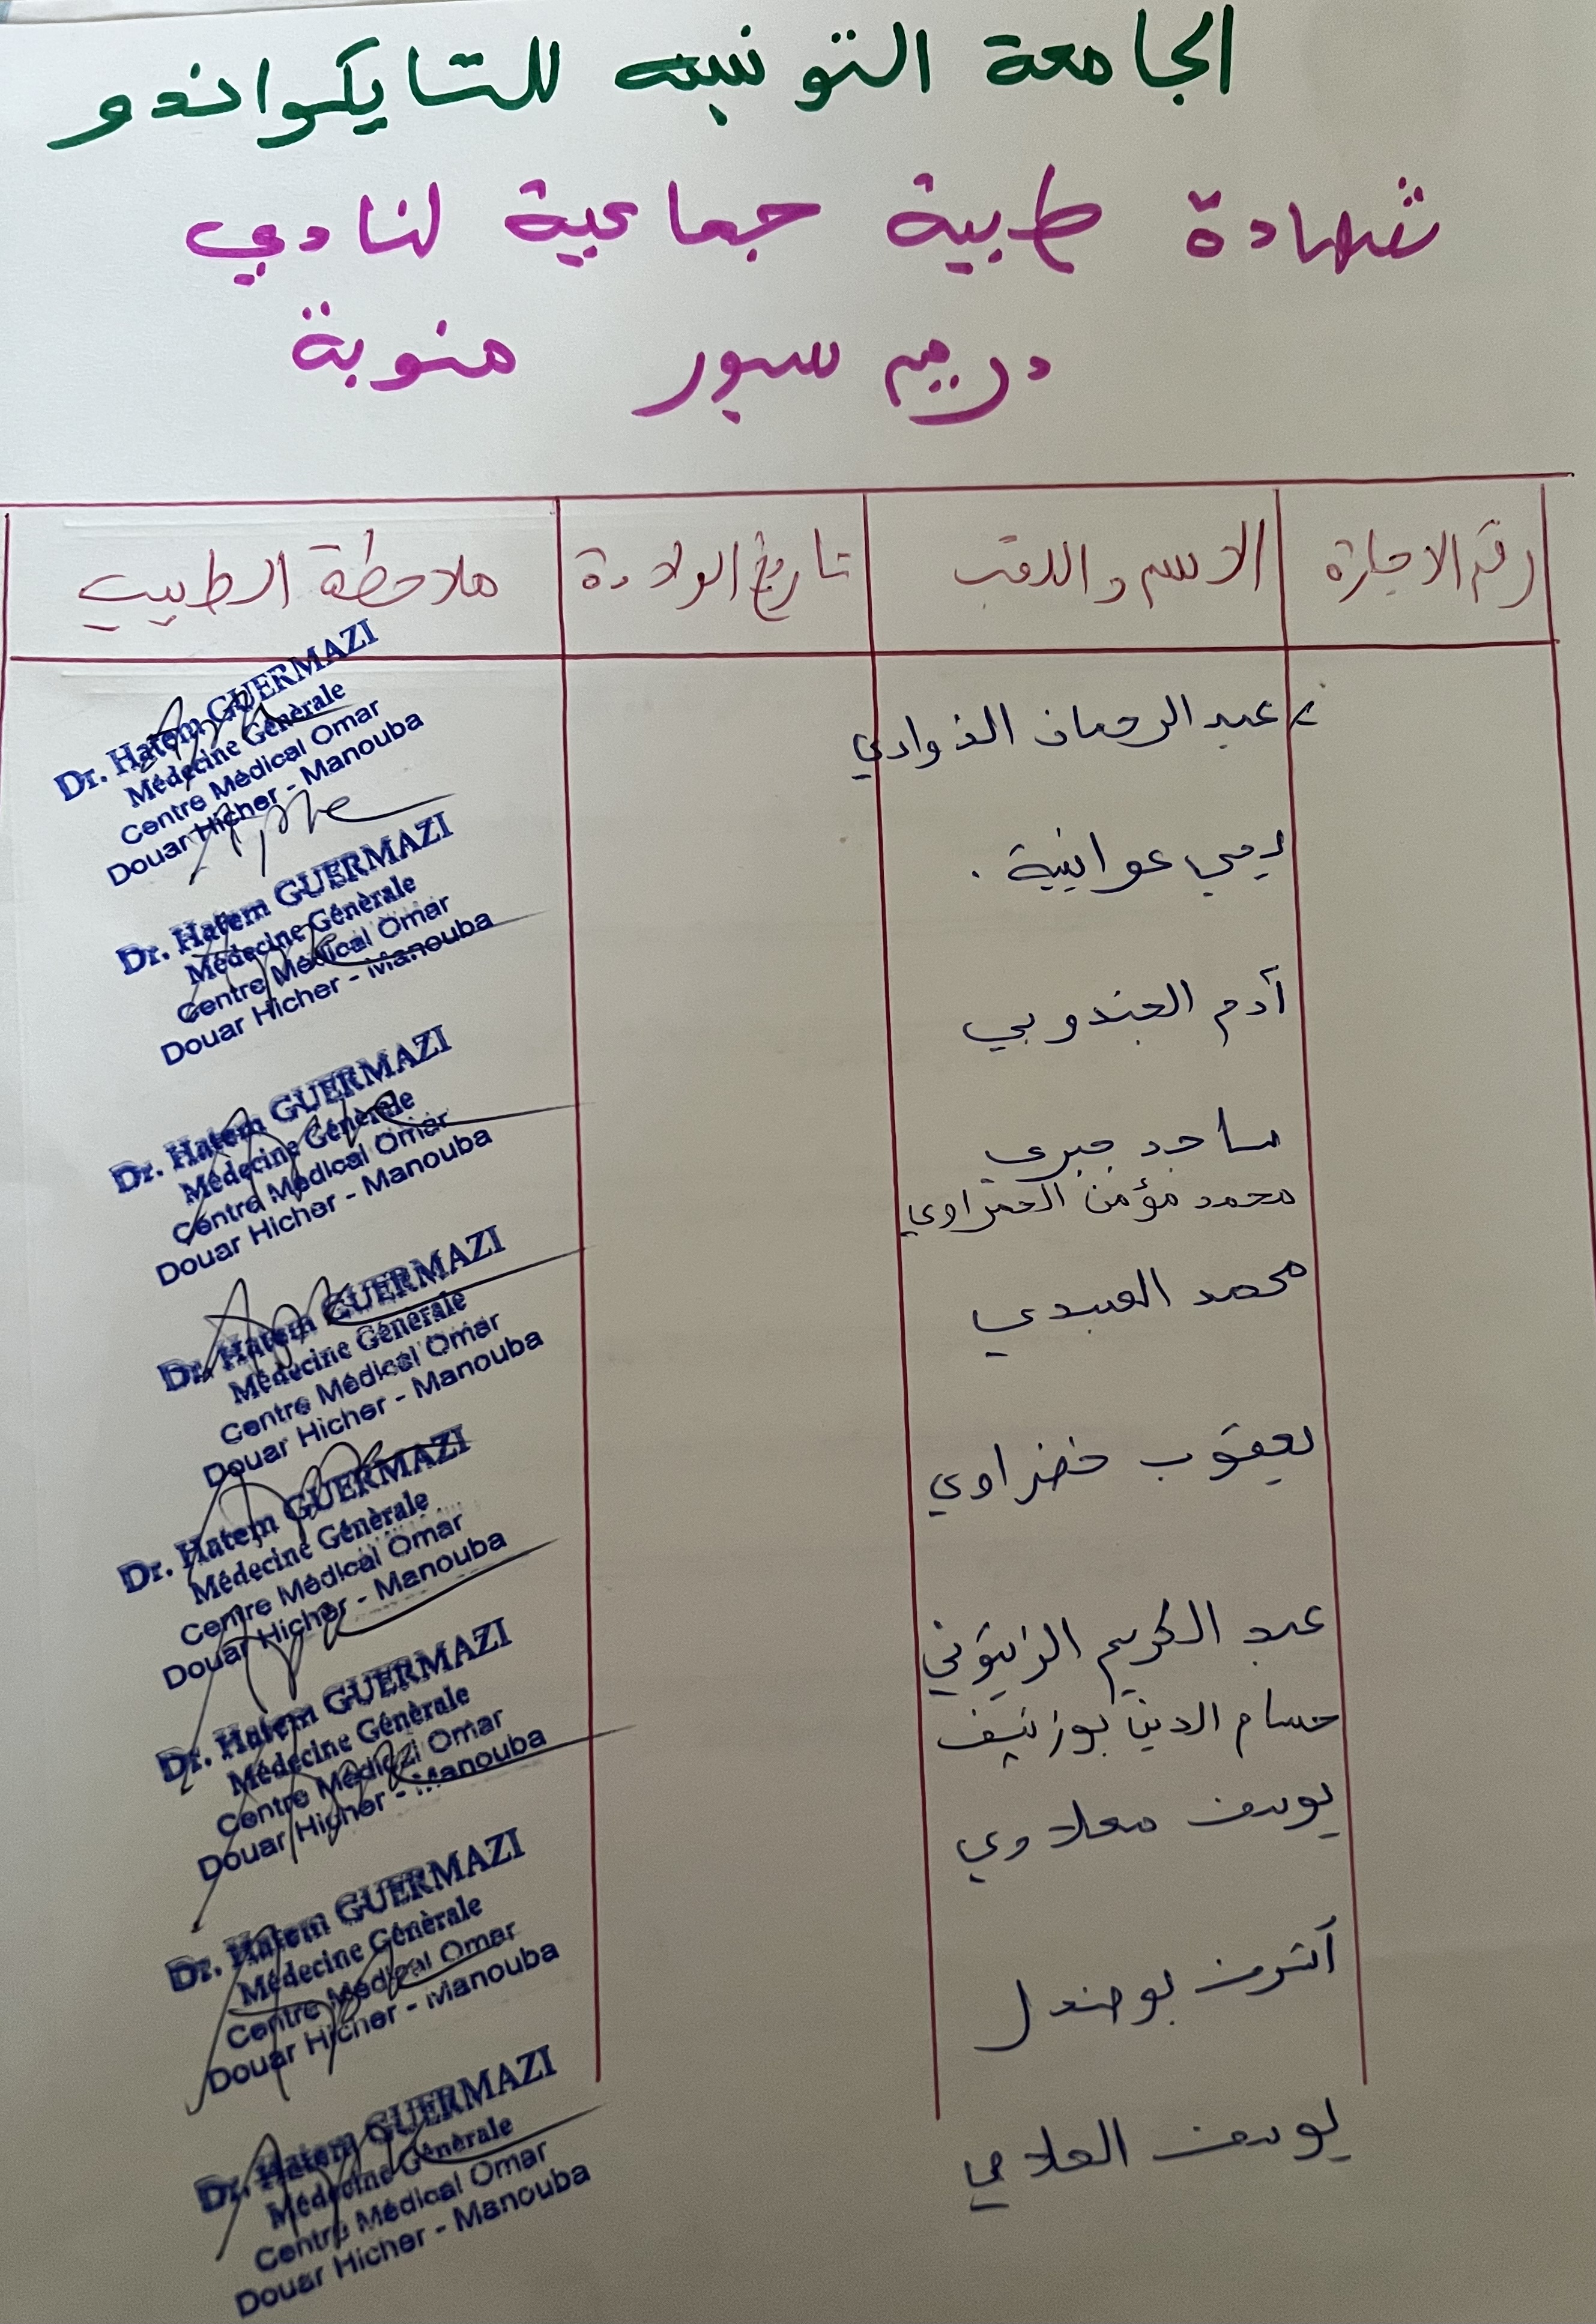 الجامعة التونسية للتايكواندو
شهادة طبية جماعية لنادي
دريم سبور منوبة
رقم الاجازة الاسم واللقب تاريخ الولادة ملاحظة الطبيب
عبد الرحمان الذوادي
Dr. Hatem GUERMAZI
Médecine Générale
Centre Médical Omar
Douar Hicher - Manouba
ريمي عواينية .
Dr. Hatem GUERMAZI
Médecine Générale
Centre Médical Omar
Douar Hicher - Manouba
آدم الجندوبي
Dr. Hatem GUERMAZI
Médecine Générale
Centre Médical Omar
Douar Hicher - Manouba
ساجد جبري
محمد مؤمن الحمراوي
محمد العبيدي
Dr. Hatem GUERMAZI
Médecine Générale
Centre Médical Omar
Douar Hicher - Manouba
يعقوب خضراوي
Dr. Hatem GUERMAZI
Médecine Générale
Centre Médical Omar
Douar Hicher - Manouba
عبد الكريم الزيتوني
حسام الدين بوزنيف
Dr. Hatem GUERMAZI
Médecine Générale
Centre Médical Omar
Douar Hicher - Manouba
يوسف معلاوي
Dr. Hatem GUERMAZI
Médecine Générale
Centre Médical Omar
Douar Hicher - Manouba
أشرف بوصندل
يوسف العلامي
Dr. Hatem GUERMAZI
Médecine Générale
Centre Médical Omar
Douar Hicher - Manouba